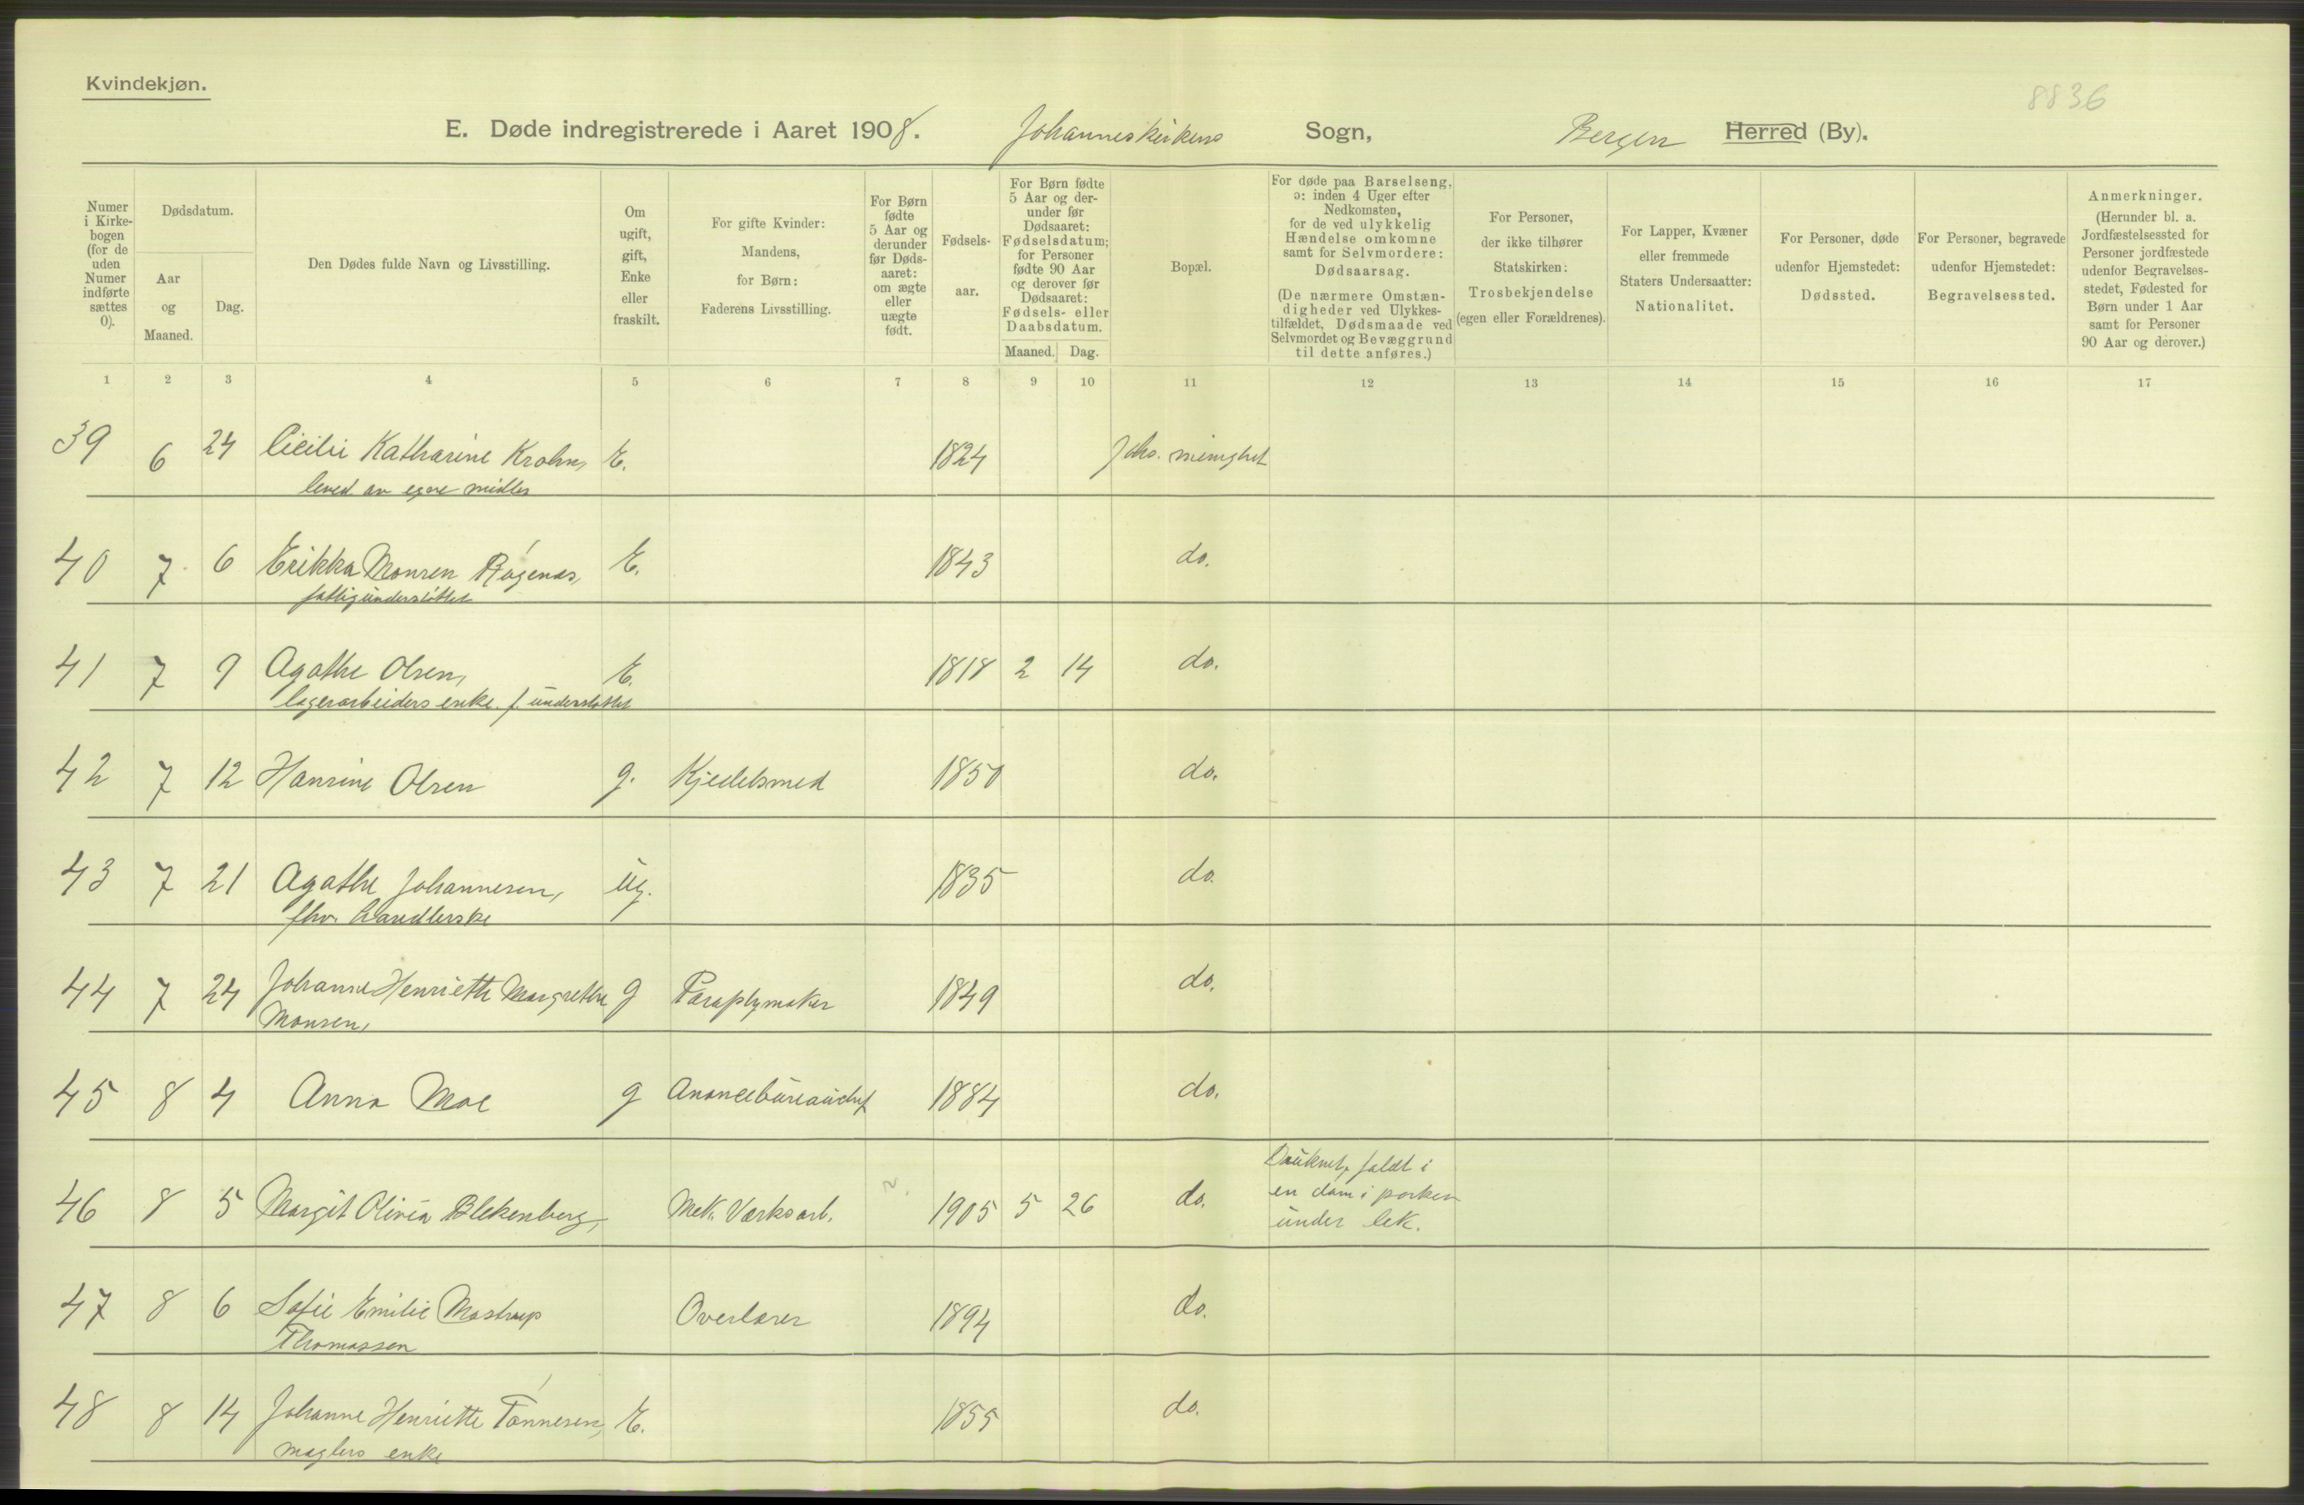 Kvindekjøn.
8836
E. Døde indregistrerede i Aaret 1908. Johanneskirkens Sogn, Bergen Herred (By).
Numer i Kirkebogen (for de uden Numer indførte sættes 0).
Dødsdatum.
Aar og Maaned.
Dag.
Den Dødes fulde Navn og Livsstilling.
Om ugift, gift, Enke eller fraskilt.
For gifte Kvinder: Mandens, for Børn: Faderens Livsstilling.
For Børn fødte 5 Aar og derunder før Dødsaaret: om ægte eller uægte født.
Fødselsaar.
For Børn fødte 5 Aar og derunder før Dødsaaret: Fødselsdatum; for Personer fødte 90 Aar og derover før Dødsaaret: Fødsels- eller Daabsdatum.
Maaned. Dag.
Bopæl.
For døde paa Barselseng, ɔ: inden 4 Uger efter Nedkomsten, for de ved ulykkelig Hændelse omkomne samt for Selvmordere: Dødsaarsag.
(De nærmere Omstændigheder ved Ulykkestilfældet, Dødsmaade ved Selvmordet og Bevæggrund til dette anføres.)
For Personer, der ikke tilhører Statskirken: Trosbekjendelse (egen eller Forældrenes).
For Lapper, Kvæner eller fremmede Staters Undersaatter: Nationalitet.
For Personer, døde udenfor Hjemstedet: Dødssted.
For Personer, begravede udenfor Hjemstedet: Begravelsessted.
Anmerkninger.
(Herunder bl. a. Jordfæstelsessted for Personer jordfæstede udenfor Begravelsesstedet, Fødested for Børn under 1 Aar samt for Personer 90 Aar og derover.)
1 2 3 4 5 6 7 8 9 10 11 12 13 14 15 16 17
39 6 24 Cicilie Katharine Krohn, E. 1824 Johs. menighet
leved av egne midler
40 7 6 Erikka Monsen Rågenes, E. 1843 do.
fattigunderstøttet
41 7 9 Agathe Olsen, E. 1818 2 14 do.
lagerarbeiders enke. f. understøttet
42 7 12 Hansine Olsen g. Kjedelsmed 1850 do.
43 7 21 Agathe Johannesen, ug. 1835 do.
fhv. handlerske
44 7 24 Johanne Henriette Margrethe g Paraplymaker 1849 do.
Monsen,
45 8 4 Anna Moe g 1884 do.
46 8 5 Margit Olivia Blekenberg, Mek. Værksarb. 1905 5 26 do. Druknet, faldt i
en dam i parken
under lek.
47 8 6 Sofie Emilie Mostrup Overlærer 1894 do.
Thomassen
48 8 14 Johanne Henriette Tønnesen, E. 1855 do.
mæglers enke